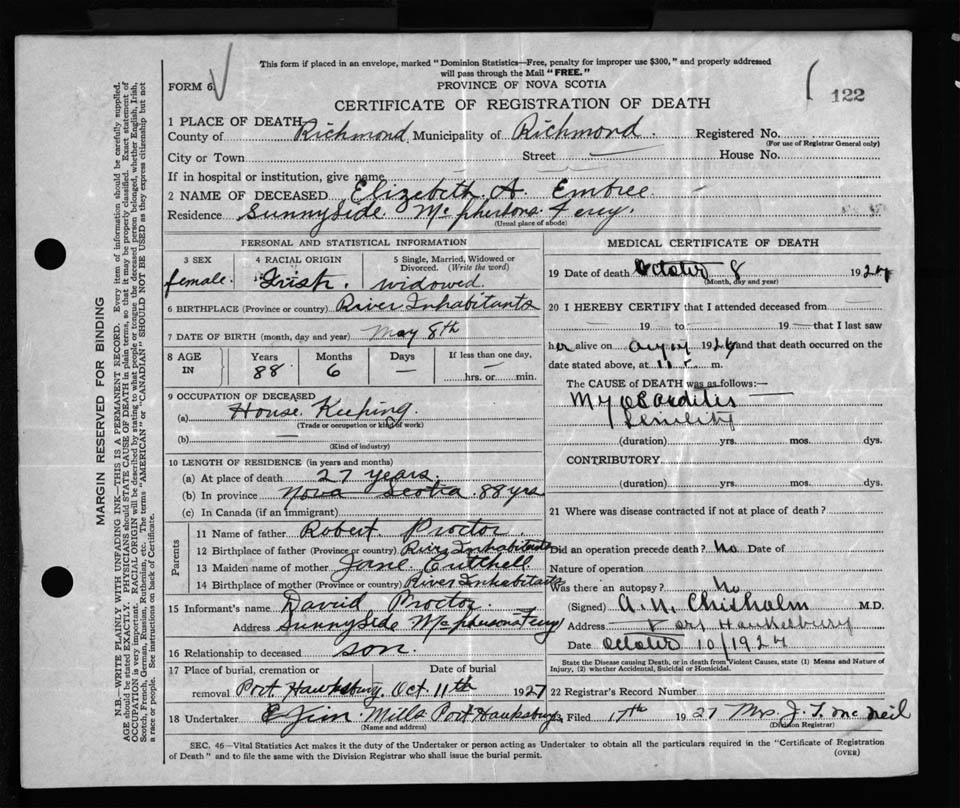 This form if placed in an envelope, marked "Dominion Statistics—Free, penalty for improper use $300," and properly addressed
will pass through the Mail "FREE."
FORM 6.
PROVINCE OF NOVA SCOTIA
CERTIFICATE OF REGISTRATION OF DEATH
122
1 PLACE OF DEATH
County of Richmond Municipality of Richmond. Registered No.
(For use of Registrar General only)
City or Town Street — House No.
If in hospital or institution, give name —
2 NAME OF DECEASED Elizabeth A. Embree
Residence Sunnyside Mcphersons Ferry.
(Usual place of abode)
PERSONAL AND STATISTICAL INFORMATION
3 SEX 4 RACIAL ORIGIN 5 Single, Married, Widowed or Divorced. (Write the word)
female. Irish. widowed
6 BIRTHPLACE (Province or country) River Inhabitants
7 DATE OF BIRTH (month, day and year) May 8th
8 AGE IN Years Months Days If less than one day,
88 6 — hrs. or min.
9 OCCUPATION OF DECEASED
(a) House Keeping.
(Trade or occupation or kind of work)
(b) —
(Kind of industry)
10 LENGTH OF RESIDENCE (in years and months)
(a) At place of death 27 years.
(b) In province Nova Scotia 88 yrs
(c) In Canada (if an immigrant)
Parents
11 Name of father Robert Proctor
12 Birthplace of father (Province or country) River Inhabitants
13 Maiden name of mother Jane
14 Birthplace of mother (Province or country) River Inhabitants
15 Informant's name David Proctor
Address Sunnyside McphersonsFerry
16 Relationship to deceased son.
17 Place of burial, cremation or Date of burial
removal Port Hawksbury. Oct 11th 1927
18 Undertaker Mills Port Hawksbury
(Name and address)
MEDICAL CERTIFICATE OF DEATH
19 Date of death October 8 1927
(Month, day and year)
20 I HEREBY CERTIFY that I attended deceased from
— 19 — to 19 — that I last saw
her alive on 192 and that death occurred on the
date stated above, at 11 m.
The CAUSE OF DEATH was as follows:—
Myocarditis
Senility
(duration) yrs. mos. dys.
CONTRIBUTORY
(duration) yrs. mos. dys.
21 Where was disease contracted if not at place of death?
Did an operation precede death? No Date of
Nature of operation
Was there an autopsy? No
(Signed) A. N. Chisholm M.D.
Address Port Hawkesbury
Date October 10/1927
State the Disease causing Death, or in death from Violent Causes, state (1) Means and Nature of
Injury, (2) whether Accidental, Suicidal or Homicidal.
22 Registrar's Record Number
Filed 17th 1927 Mrs. J. T. McNeil
(Division Registrar)
SEC. 46—Vital Statistics Act makes it the duty of the Undertaker or person acting as Undertaker to obtain all the particulars required in the "Certificate of Registration
of Death" and to file the same with the Division Registrar who shall issue the burial permit.
(OVER)
MARGIN RESERVED FOR BINDING
N.B.—WRITE PLAINLY WITH UNFADING INK—THIS IS A PERMANENT RECORD. Every item of information should be carefully supplied.
AGE should be stated EXACTLY. PHYSICIANS should STATE CAUSE OF DEATH in plain terms, so that it may be properly classified. Exact statement of
OCCUPATION is very important. RACIAL ORIGIN will be described by stating to what people or tongue the deceased person belonged, whether English, Irish,
Scotch, French, German, Russian, Ruthenian, etc. The terms "AMERICAN" or "CANADIAN" SHOULD NOT BE USED as they express citizenship but not
a race or people. See instructions on back of Certificate.